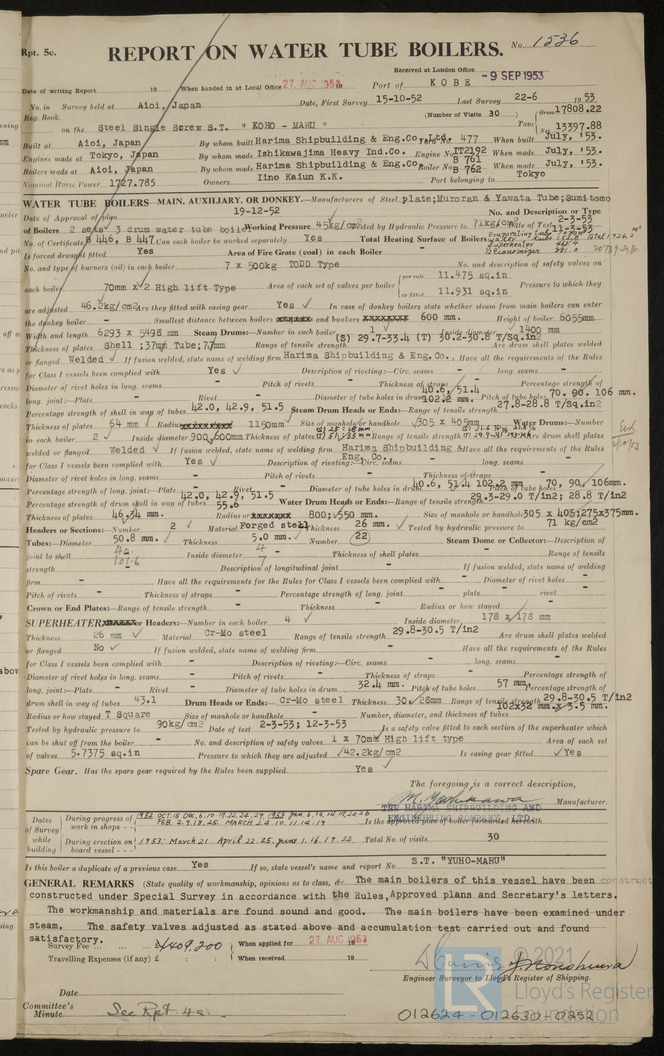 Rpt. 5c.
REPORT ON WATER TUBE BOILERS.
No. 1536
Received at London Office - 9 SEP 1953
Date of writing Report 19 When handed in at Local Office 27. AUG 1953 19 Port of KOBE
No. in Survey held at Aioi, Japan Date, First Survey 15-10-52 Last Survey 22-6 1953
Reg. Book. (Number of Visits 30 ) Gross 17808.22
on the Steel Single Screw S.T. " KOHO - MARU " Tons Net 13397.88
Built at Aioi, Japan By whom built Harima Shipbuilding & Eng.Co.Ltd. Yard No. 477 When built July, '53.
Engines made at Tokyo, Japan By whom made Ishikawajima Heavy Ind.Co. Engine No. IT2192 When made July, '53.
Boilers made at Aioi, Japan By whom made Harima Shipbuilding & Eng.Co. Boiler No. B 761 B 762 When made July, '53.
Nominal Horse Power 1727.785 Owners Iino Kaiun K.K. Port belonging to Tokyo
WATER TUBE BOILERS MAIN, AUXILIARY, OR DONKEY.—Manufacturers of Steel plate;Muroran & Yawata Tube;Sumitomo
Date of Approval of plan 19-12-52 No. and Description or Type
of Boilers 2 sets 3 drum water tube boiler Working Pressure 45kg/cm2 Tested by Hydraulic Pressure to 71kg/cm2 Date of Test 2-3-53 11-3-53
No. of Certificate B 446, B 447 Can each boiler be worked separately Yes Total Heating Surface of Boilers
Is forced draught fitted Yes Area of Fire Grate (coal) in each Boiler -
No. and type of burners (oil) in each boiler 7 x 500kg TODD Type No. and description of safety valves on
each boiler 70mm x 2 High lift Type Area of each set of valves per boiler per rule 11.475 sq.in. as fitted 11.931 sq.in. Pressure to which they
are adjusted 46.2kg/cm2 Are they fitted with easing gear Yes In case of donkey boilers state whether steam from main boilers can enter
the donkey boiler - Smallest distance between boilers and bunkers 600 mm. Height of boiler 6055mm
Width and length 6293 x 5498 mm Steam Drums:—Number in each boiler 1 Inside diameter 1400 mm
Thickness of plates Shell ;37mm Tube;77mm Range of tensile strength (S) 29.7-33.4 (T) 30.2-30.8 T/Sq.in2 Are drum shell plates welded
or flanged Welded If fusion welded, state name of welding firm Harima Shipbuilding & Eng.Co., Have all the requirements of the Rules
for Class I vessels been complied with Yes Description of riveting:—Circ. seams - long. seams -
Diameter of rivet holes in long. seams - Pitch of rivets - Thickness of straps - Percentage strength of
long. joint:—Plate - Rivet - Diameter of tube holes in drum 40.6, 51.4 102.2 mm Pitch of tube holes 70. 90. 106 mm.
Percentage strength of shell in way of tubes 42.0, 42.9, 51.5 Steam Drum Heads or Ends:—Range of tensile strength 27.8-28.8 T/Sq.in2
Thickness of plates 64 mm Radius 1150mm Size of manhole or handhole 305 x 405mm Water Drums:—Number
in each boiler 2 Inside diameter 900,600mm Thickness of plates Range of tensile strength Are drum shell plates
welded or flanged Welded If fusion welded, state name of welding firm Harima Shipbuilding & Eng. Co. Have all the requirements of the Rules
for Class I vessels been complied with Yes Description of riveting:—Circ. seams - long. seams -
Diameter of rivet holes in long. seams - Pitch of rivets - Thickness of straps -
Percentage strength of long. joint:—Plate - Rivet - Diameter of tube holes in drum 40.6, 51.4 102.2 mm Pitch of tube holes 70, 90, 106mm.
Percentage strength of drum shell in way of tubes 42.0, 42.9, 51.5 55.6 Water Drum Heads or Ends:—Range of tensile strength 28.3-29.0 T/in2; 28.8 T/in2
Thickness of plates 46,34 mm. Radius 800;550 mm. Size of manhole or handhole 305 x 405;275x375mm.
Headers or Sections:—Number 2 Material Forged steel Thickness 26 mm. Tested by hydraulic pressure to 71 kg/cm2
Tubes:—Diameter 50.8 mm. Thickness 5.0 mm. Number (22) Steam Dome or Collector:—Description of
joint to shell Inside diameter Thickness of shell plates - Range of tensile
strength Description of longitudinal joint If fusion welded, state name of welding
firm - Have all the requirements for the Rules for Class I vessels been complied with - Diameter of rivet holes -
Pitch of rivets - Thickness of straps - Percentage strength of long. joint - plate - rivet -
Crown or End Plates:—Range of tensile strength - Thickness - Radius or how stayed -
SUPERHEATER or Headers:—Number in each boiler 4 Inside diameter 178 x 178 mm
Thickness 26 mm Material Cr-Mo steel Range of tensile strength 29.8-30.5 T/in2 Are drum shell plates welded
or flanged No If fusion welded, state name of welding firm - Have all the requirements of the Rules
for Class I vessels been complied with - Description of riveting:—Circ. seams - long. seams -
Diameter of rivet holes in long. seams - Pitch of rivets - Thickness of straps - Percentage strength of
long. joint:—Plate - Rivet - Diameter of tube holes in drum 32.4 mm. Pitch of tube holes 57 mm. Percentage strength of
drum shell in way of tubes 43.1 Drum Heads or Ends:— Cr-Mo steel Thickness 30. 28mm Range of tensile strength 29.8-30.5 T/in2
Radius or how stayed T Square Size of manhole or handhole - Number, diameter, and thickness of tubes 102x32 mm x 3.5 mm.
Tested by hydraulic pressure to 90kg/cm2 Date of test 2-3-53; 12-3-53 Is a safety valve fitted to each section of the superheater which
can be shut off from the boiler - No. and description of safety valves 1 x 70mm High lift type Area of each set
of valves 5.7375 sq.in Pressure to which they are adjusted 42.2kg/cm2 Is easing gear fitted Yes
Spare Gear. Has the spare gear required by the Rules been supplied Yes
The foregoing is a correct description,
Manufacturer.
THE HARIMA SHIPBUILDING AND
ENGINEERING COMPANY, LTD.
Dates of Survey while building
During progress of work in shops - -
Is the approved plan of boiler forwarded herewith
During erection on board vessel - - - 1953 March 21 April 22.25. June 1.16.19.22 Total No. of visits 30
Is this boiler a duplicate of a previous case Yes If so, state vessel's name and report No. S.T. "YUHO-MARU"
GENERAL REMARKS (State quality of workmanship, opinions as to class, &c. The main boilers of this vessel have been construct
constructed under Special Survey in accordance with the Rules,Approved plans and Secretary's letters.
The workmanship and materials are found sound and good. The main boilers have been examined under
steam. The safety valves adjusted as stated above and accumulation test carried out and found
satisfactory.
Survey Fee ... ... ... ¥409,200 When applied for 27. AUG 1953 19
Travelling Expenses (if any) £ : : When received 19
Engineer Surveyor to Lloyd's Register of Shipping.
Date
Committee's
Minute See Rpt. 4a.
© 2021
LR
Lloyd's Register
Foundation
012624-012630-0252